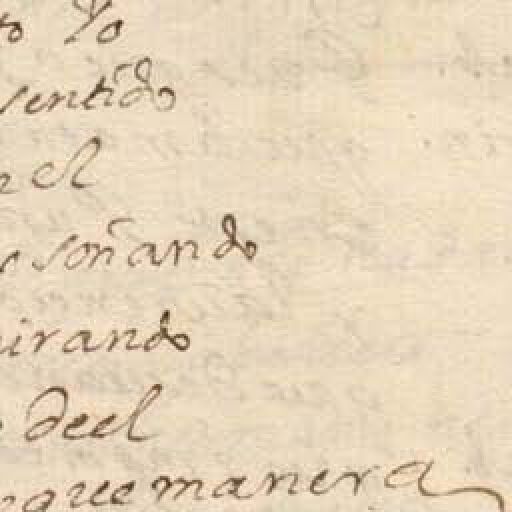 to Yo
sentido
el
soñando
mirando
deel
que manera